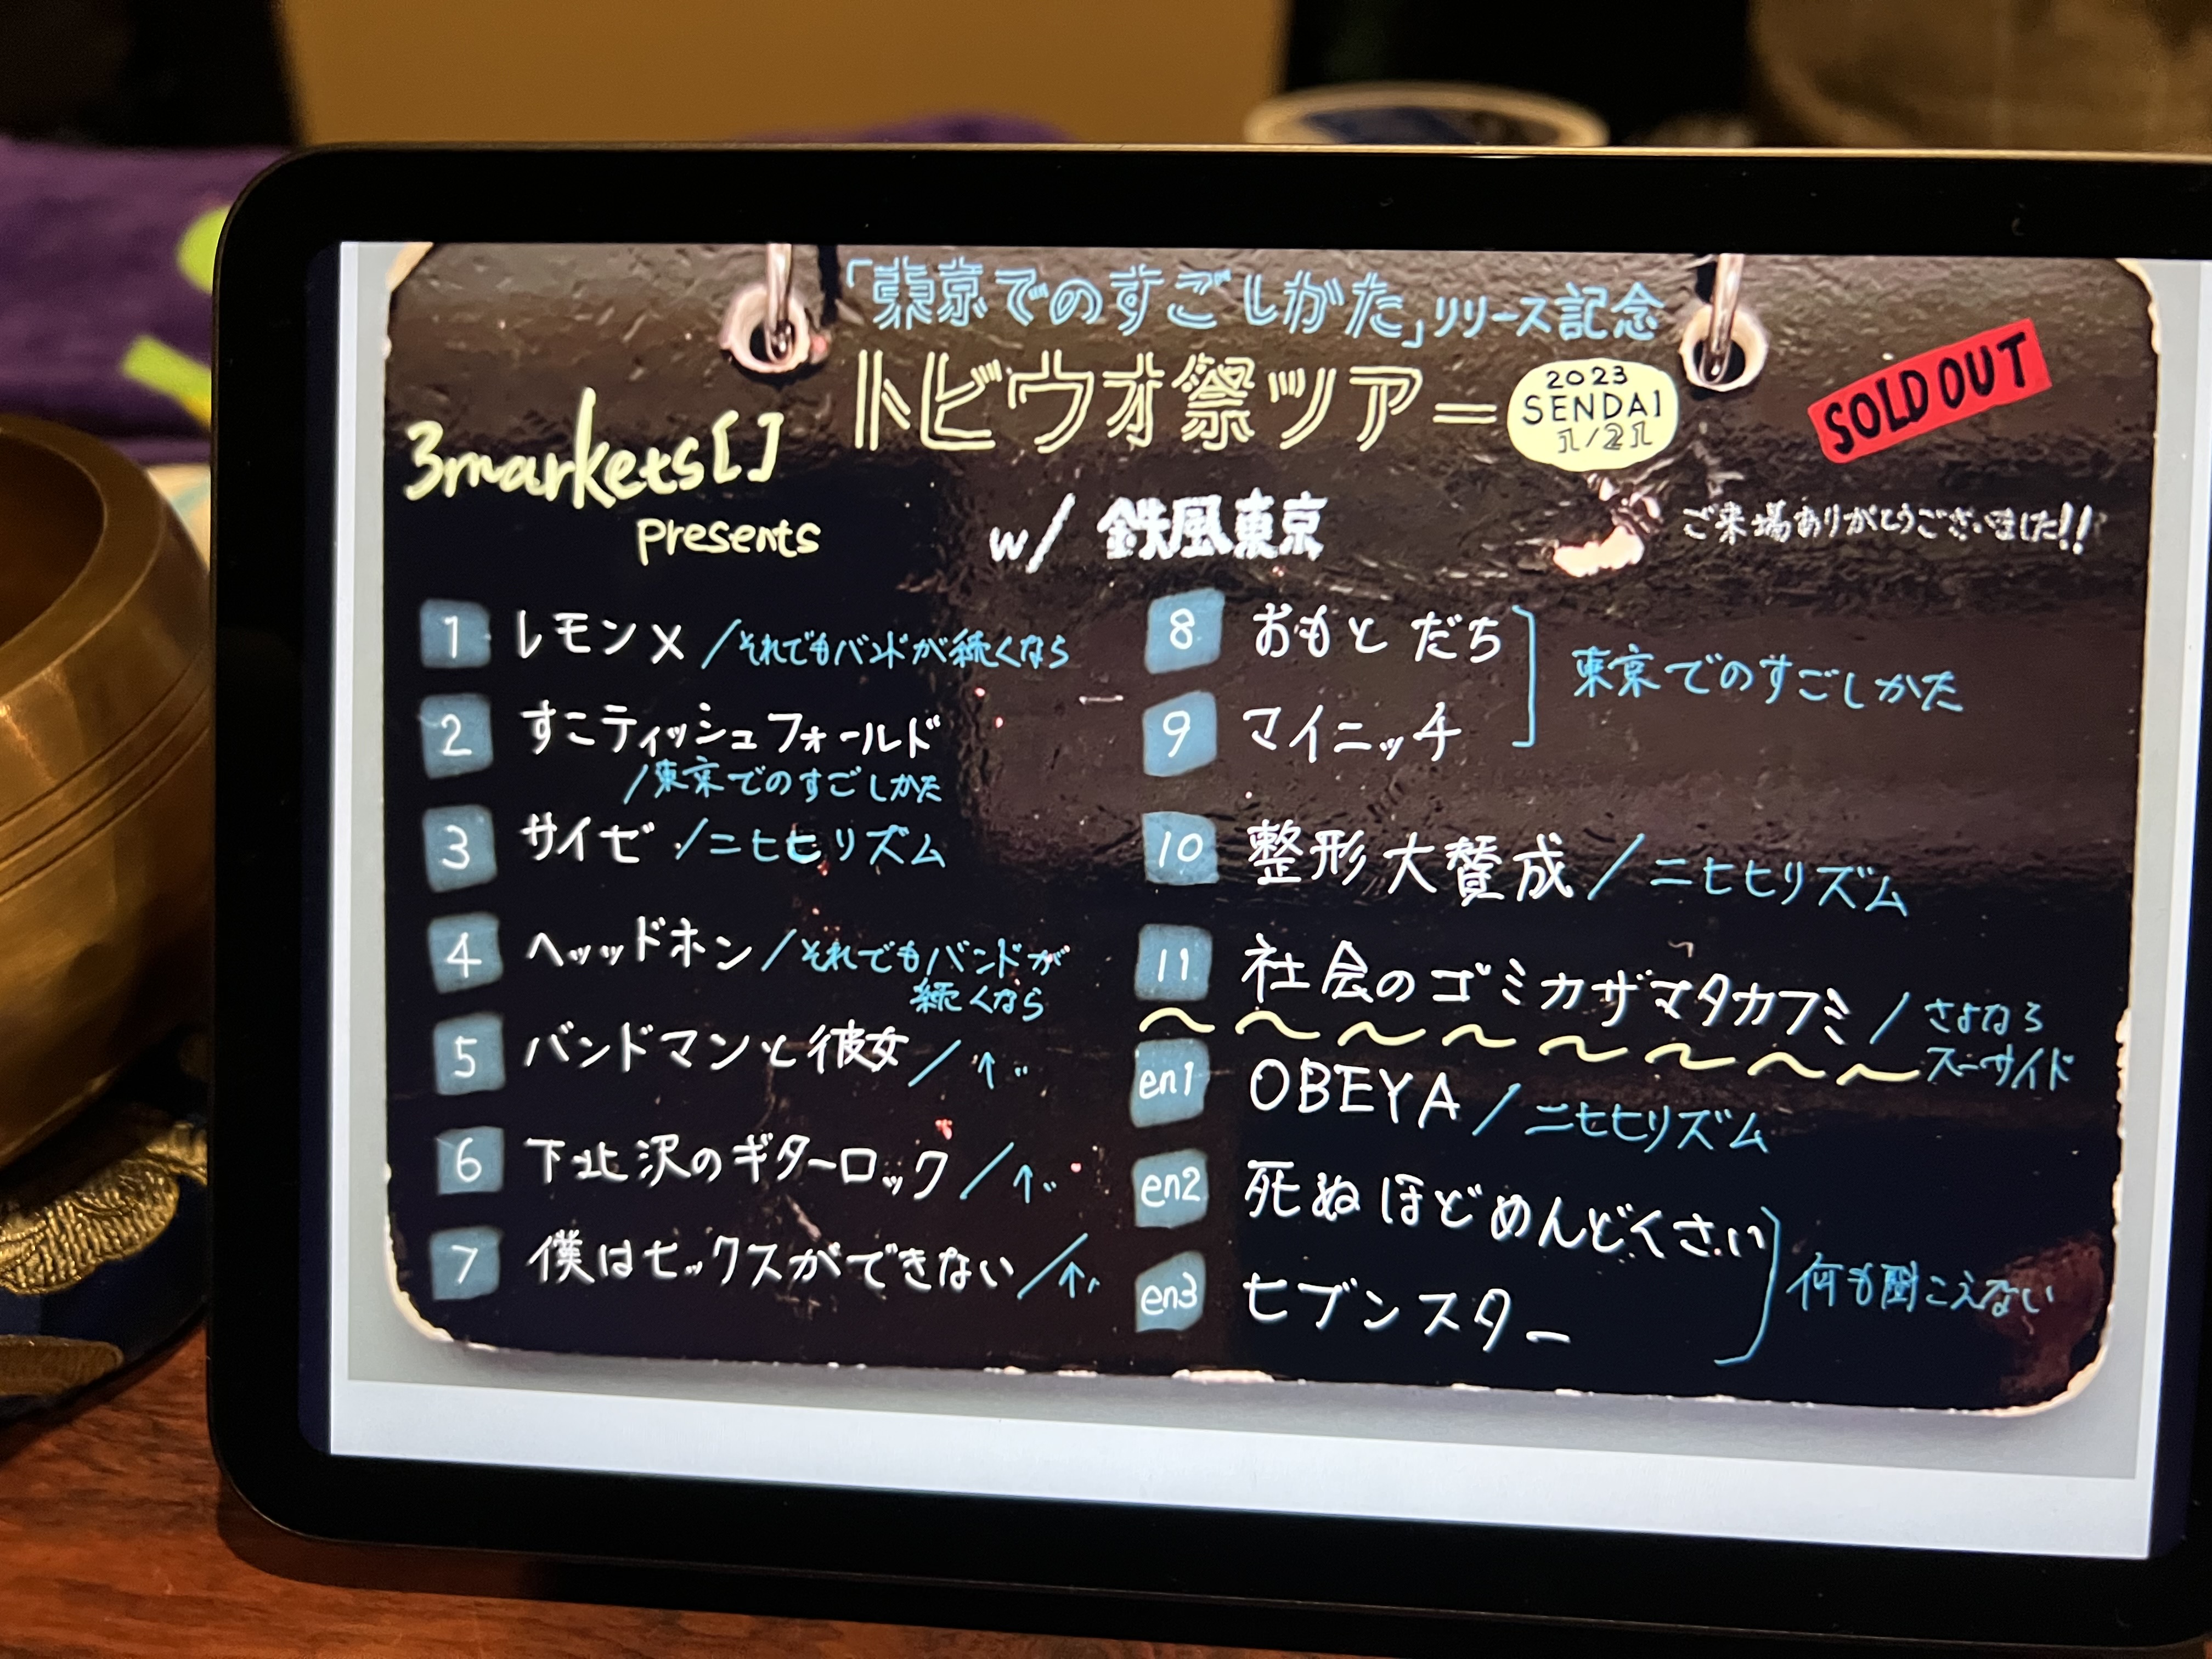 「東京でのすごしかた」リリース記念
トビウオ祭ツアー
2023
SENDAI
1/21
SOLD OUT
3markets[]
presents
w/ 鉄風東京
ご来場ありがとうございました!!
1 レモン× /それでもバンドが続くなら
2 すこティッシュフォールド
/東京でのすごしかた
3 サイゼ /ニヒヒリズム
4 ヘッドホン /それでもバンドが
続くなら
5 バンドマンと彼女 / ↑..
6 下北沢のギターロック / ↑..
7 僕はセックスができない / ↑..
8 おもとだち
9 マイニッチ
東京でのすごしかた
10 整形大賛成 / ニヒヒリズム
11 社会のゴミカザマタカフミ / さよなら
スーサイド
~ ~ ~ ~ ~ ~ ~ ~
en1 OBEYA / ニヒヒリズム
en2 死ぬほどめんどくさい
en3 セブンスター
何も聞こえない